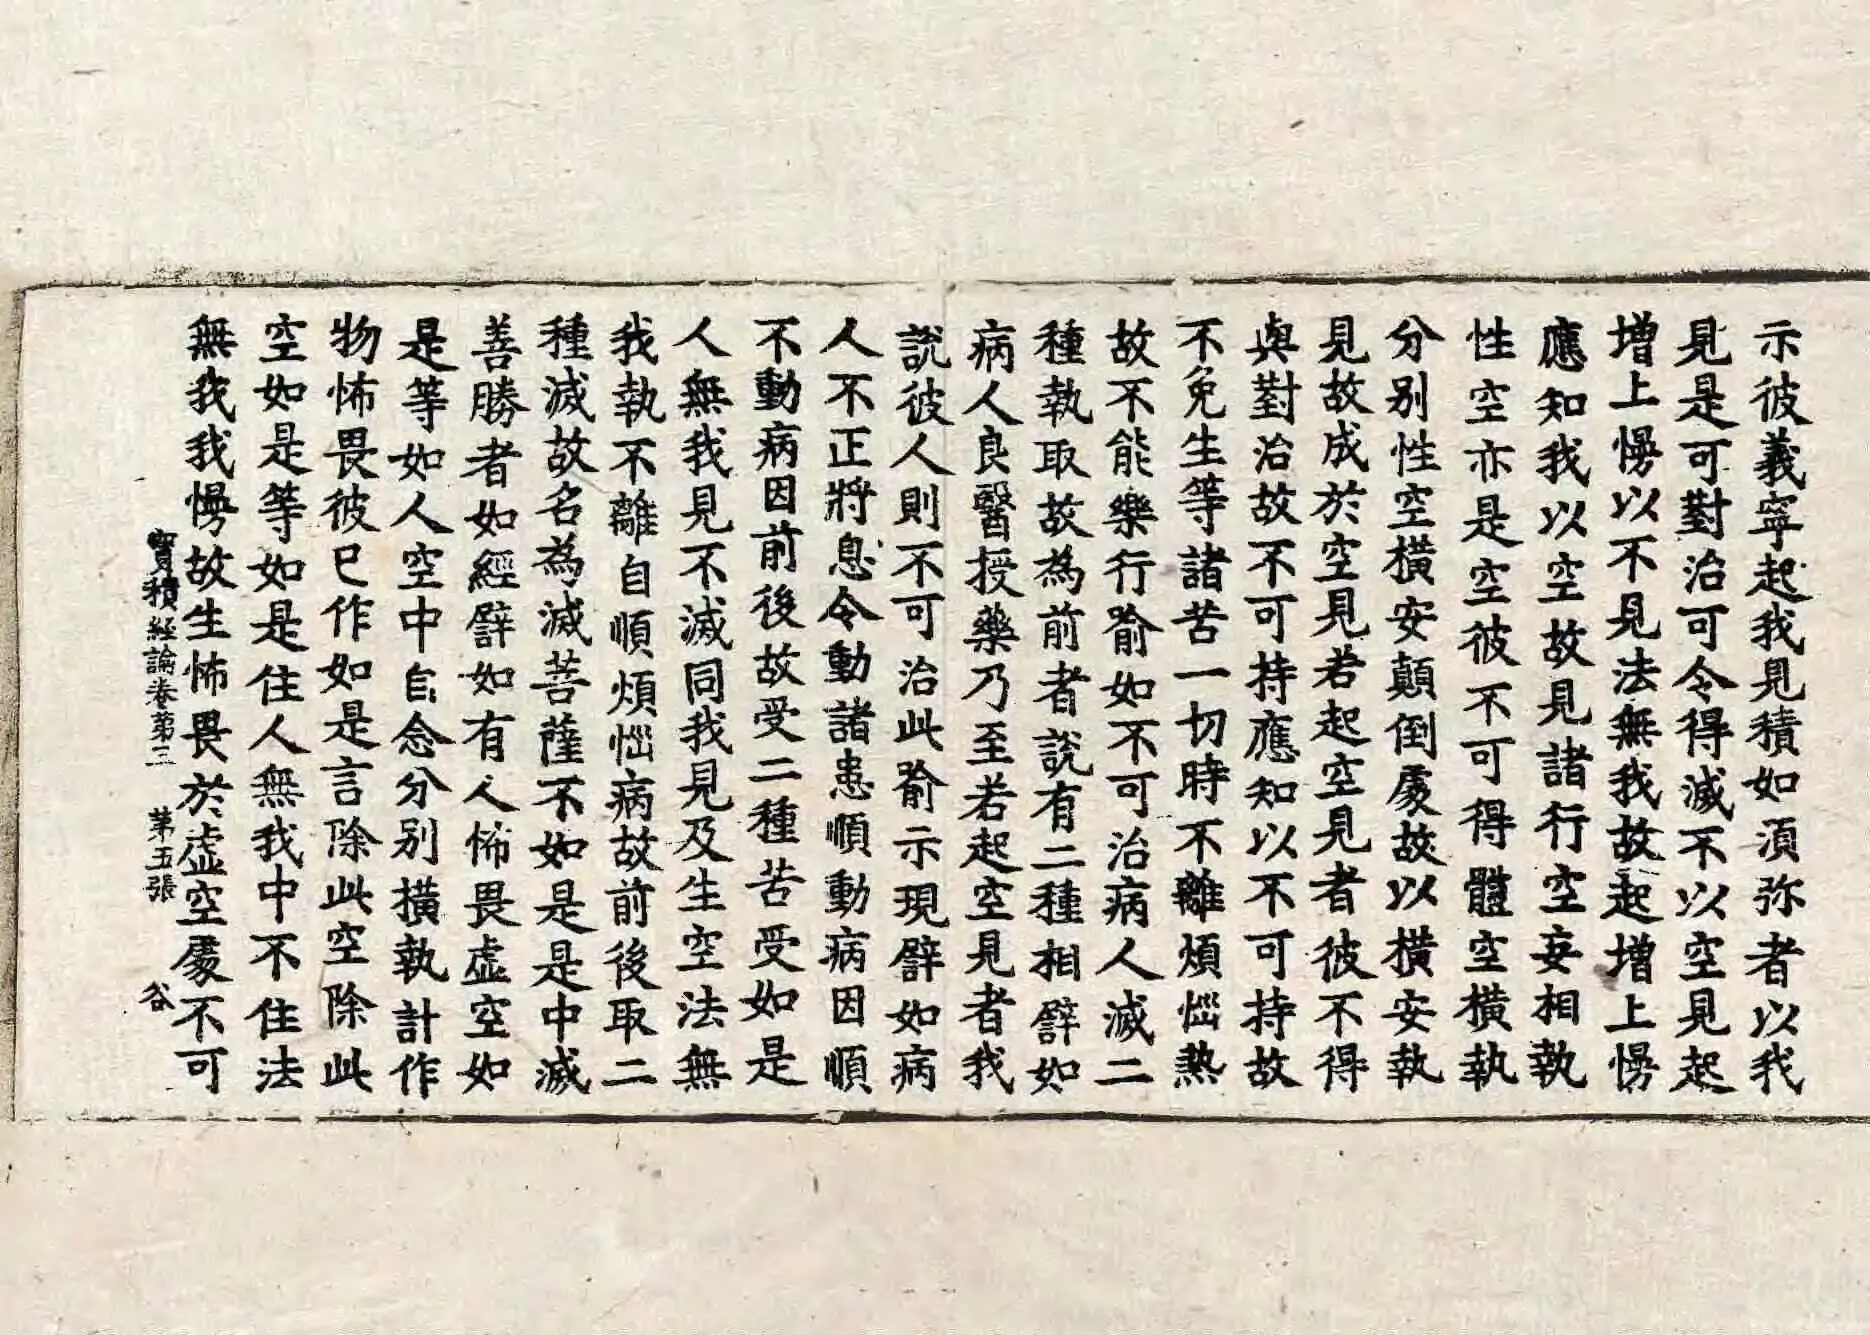 示彼義寧起我見積如湏弥者以我
見是可對治可令得滅不以空見起
增上慢以不見法無我故起增上慢
應知我以空故見諸行空妄相執
性空亦是空彼不可得體空橫執
分別性空橫安顛倒處故以橫安執
見故成於空見若起空見者彼不得
與對治故不可持應知以不可持故
不免生等諸苦一切時不離煩惱熱
故不能樂行喻如不可治病人滅二
種執取故為前者說有二種相譬如
病人良醫授藥乃至若起空見者我
說彼人則不可治此喻示現譬如病
人不正將息令動諸患順動病因順
不動病因前後故受二種苦受如是
人無我見不滅同我見及生空法無
我執不離自順煩惱病故前後取二
種滅故名為滅菩薩不如是是中滅
善勝者如經譬如有人怖畏虛空如
是等如人空中自念分別橫執計作
物怖畏彼已作如是言除此空除此
空如是等如是住人無我中不住法
無我我慢故生怖畏於虛空處不可
寶積經論卷第三 第五張 谷